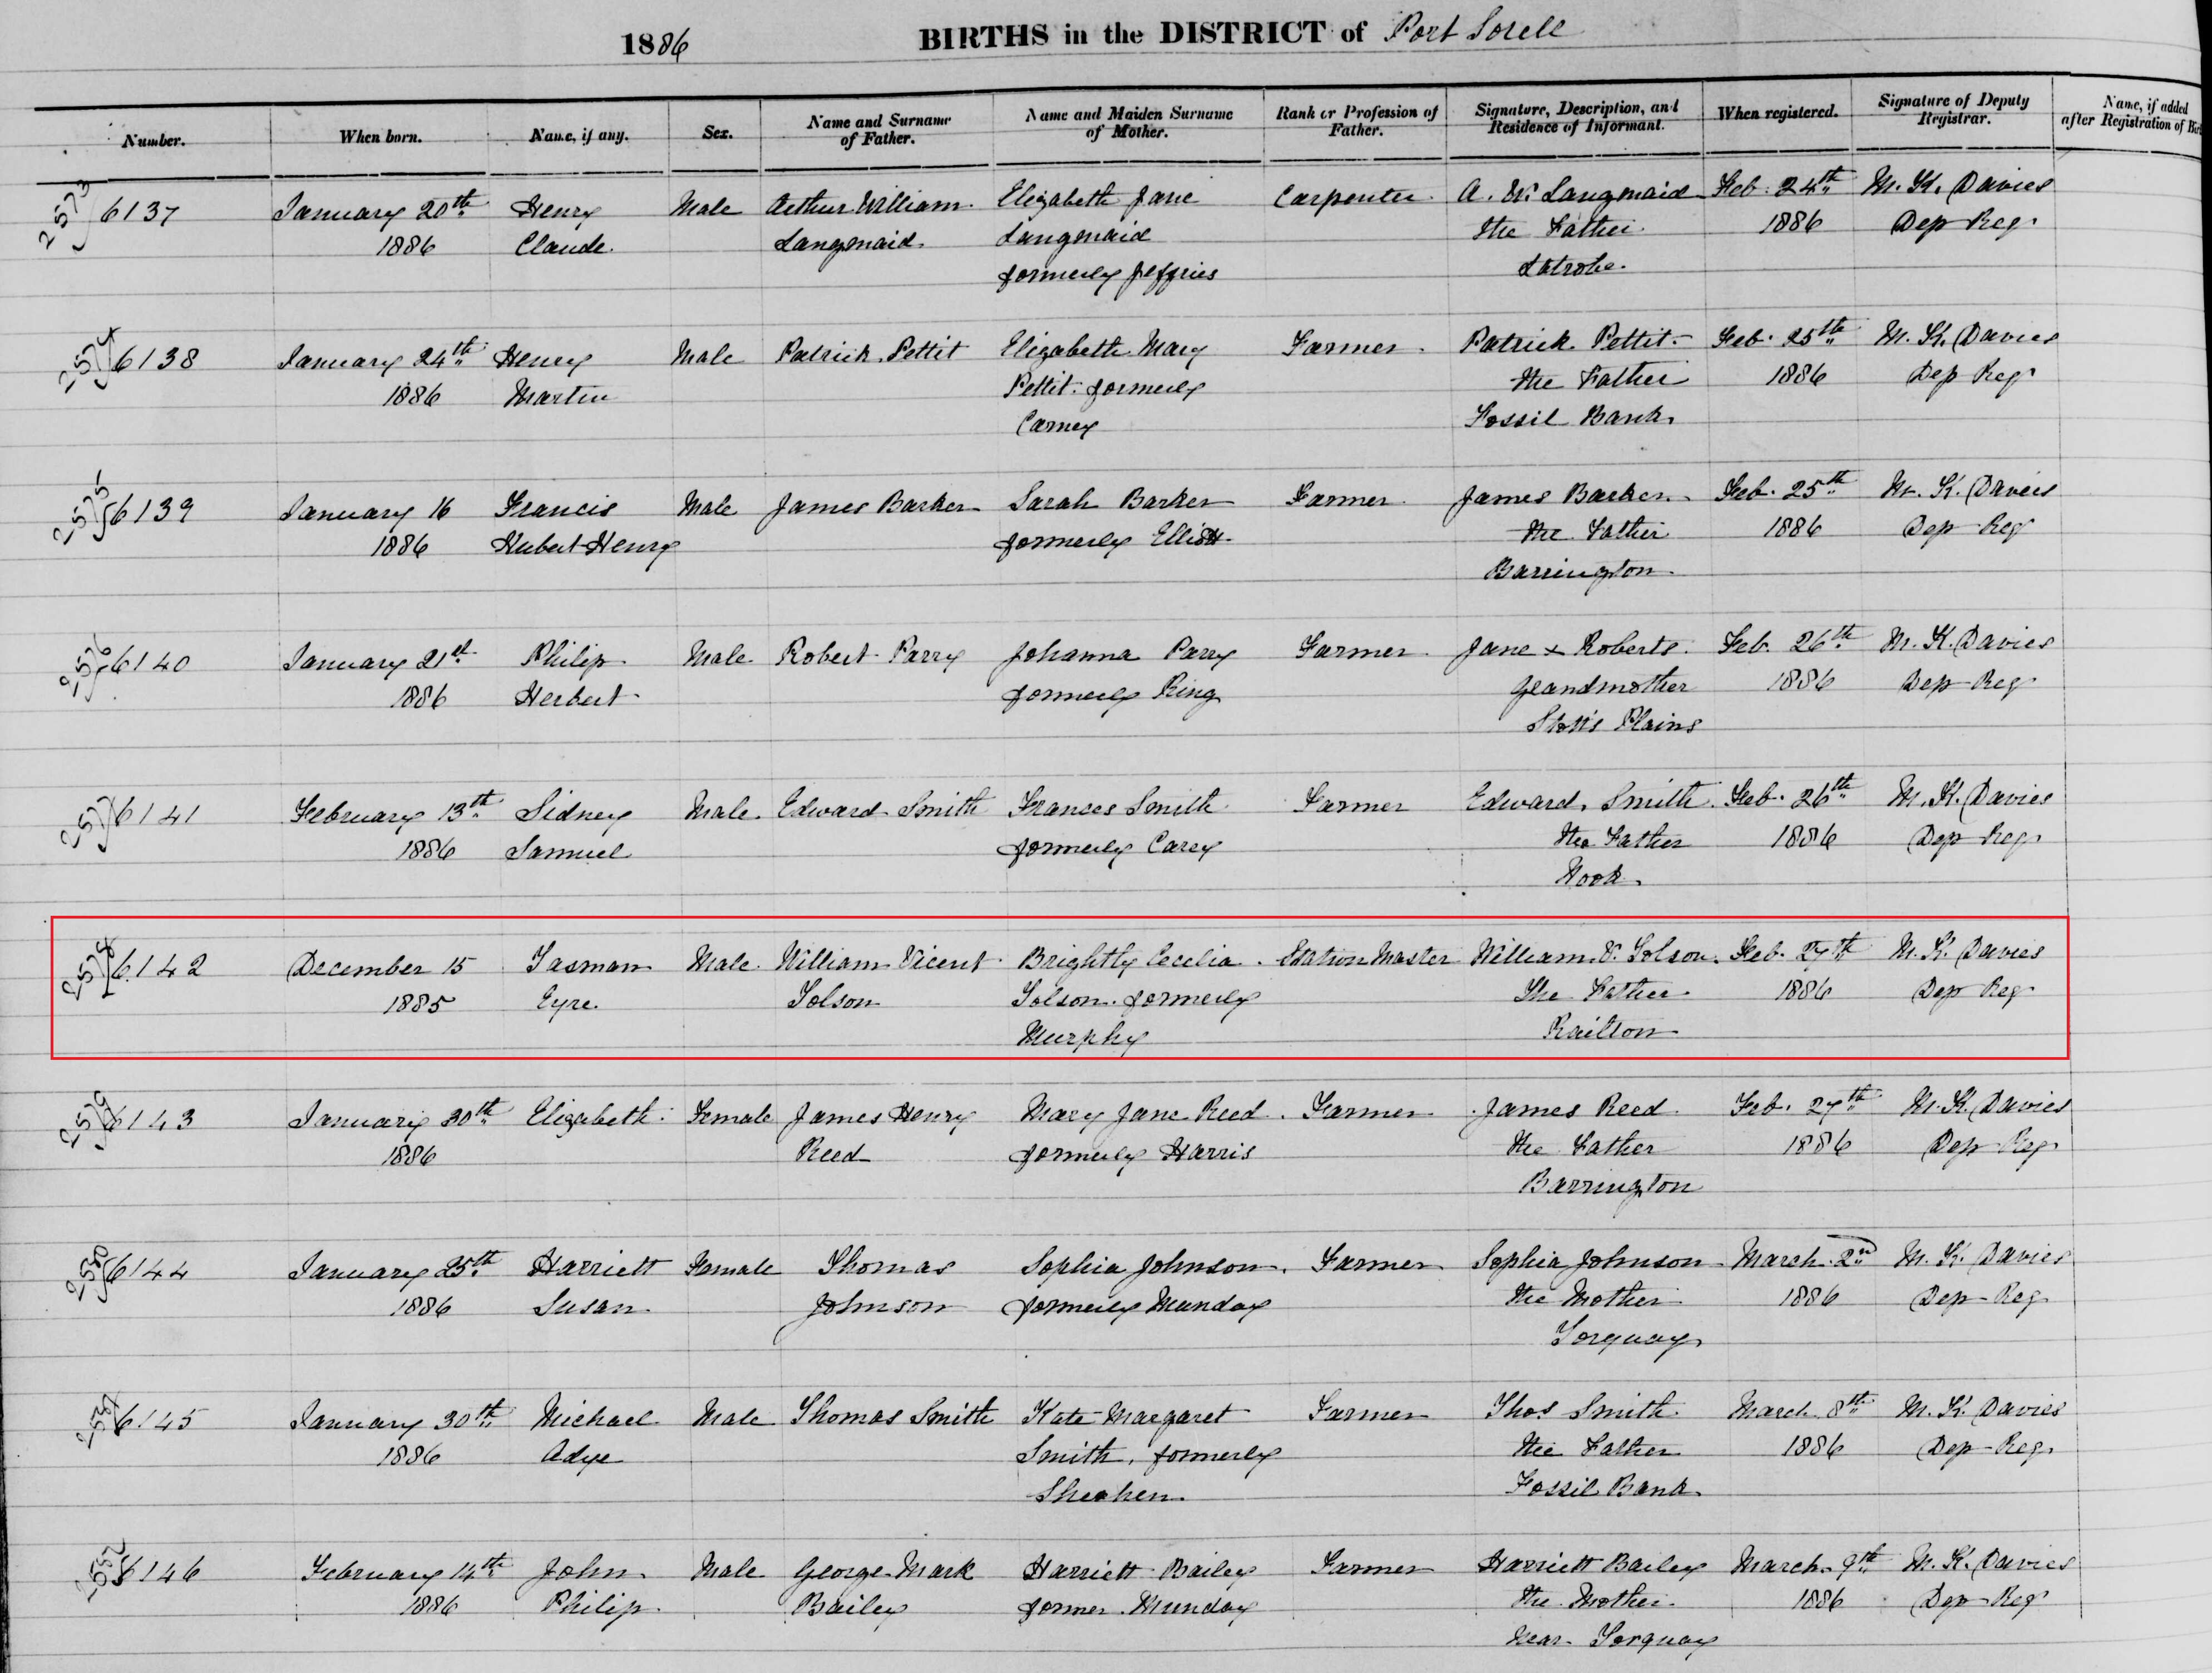 1886 BIRTHS in the DISTRICT of Port Sorell
Number. When born. Name, if any. Sex. Name and Surname of Father. Name and Maiden Surname of Mother. Rank or Profession of Father. Signature, Description, and Residence of Informant. When registered. Signature of Deputy Registrar. Name, if added after Registration of Bir
2573 6137 January 20th Henry Male Arthur William Elizabeth Jane Carpenter A. W. Langmaid Feb. 24th M. K. Davies
1886 Claude. Langmaid Langmaid the Father 1886 Dep Reg
formerly Jeffries Latrobe.
2574 6138 January 24th Henry Male Patrick Pettit Elizabeth Mary Farmer Patrick Pettit Feb. 25th M. K. Davies
1886 Martin Pettit formerly the Father 1886 Dep Reg
Carney Fossil Bank
2575 6139 January 16 Francis Male James Barker Sarah Barker Farmer James Barker Feb. 25th M. K. Davies
1886 Hubert Henry formerly Elliott the Father 1886 Dep Reg
Barrington
2576 6140 January 21st Philip Male Robert Parry Johanna Parry Farmer Jane x Roberts Feb. 26th M. K. Davies
1886 Herbert formerly Ring Grandmother 1886 Dep Reg
Plains
2577 6141 February 13th Sidney Male Edward Smith Frances Smith Farmer Edward Smith Feb. 26th M. K. Davies
1886 Samuel formerly Carey the Father 1886 Dep Reg
Nook
2578 6142 December 15 Tasman Male William Vicent Brightly Cecelia Station Master William V. Tolson Feb. 27th M. K. Davies
1885 Eyre. Tolson Tolson formerly The Father 1886 Dep Reg
Murphy Railton
2579 6143 January 30th Elizabeth Female James Henry Mary Jane Reed Farmer James Reed Feb. 27th M. K. Davies
1886 Reed formerly Harris the Father 1886 Dep Reg
Barrington
2580 6144 January 25th Harriett Female Thomas Sophia Johnson Farmer Sophia Johnson March 2nd M. K. Davies
1886 Susan Johnson formerly Munday the Mother 1886 Dep Reg
Torquay
6145 January 30th Michael Male Thomas Smith Kate Margaret Farmer Thos Smith March 8th M. K. Davies
1886 Adye Smith, formerly the Father 1886 Dep Reg
Sheehen Fossil Bank
2582 6146 February 14th John Male George Mark Harriett Bailey Farmer Harriett Bailey March 9th M. K. Davies
1886 Philip Bailey former Munday the Mother 1886 Dep Reg
near Torquay